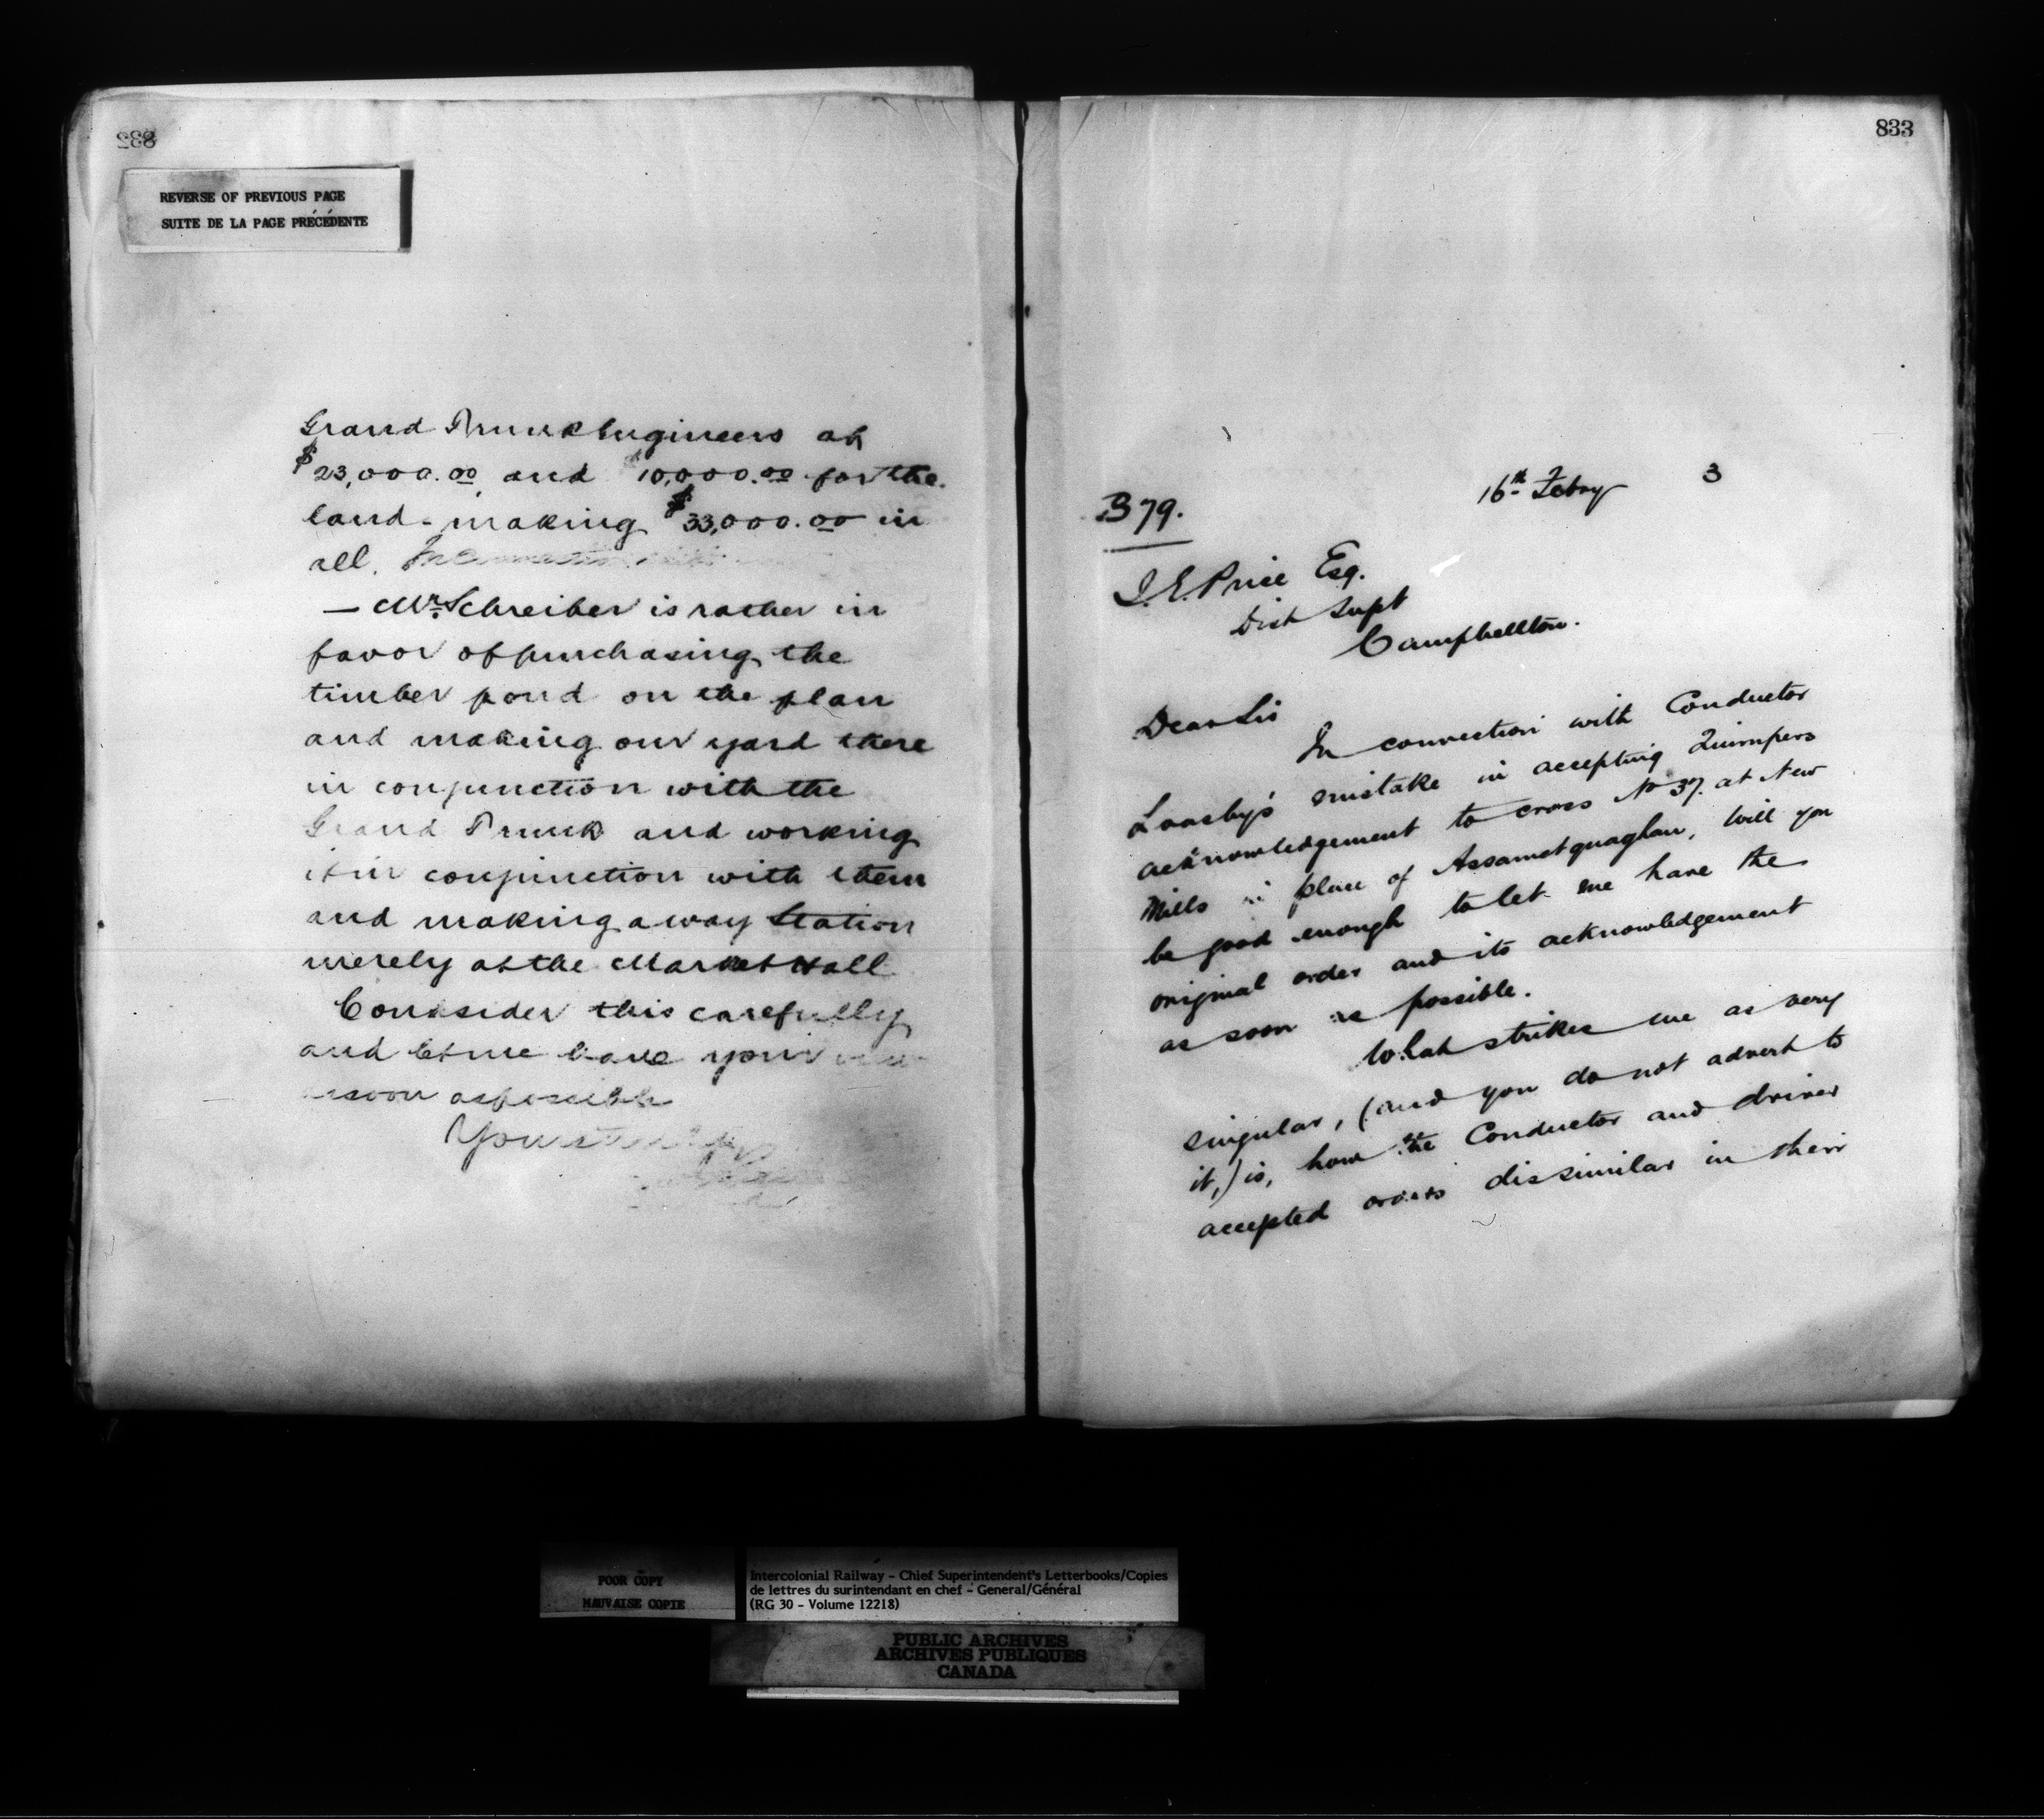 832
REVERSE OF PREVIOUS PAGE
SUITE DE LA PAGE PRÉCÉDENTE
Grand Trunk Engineers at
$23,000.00 and 10,000.00 for the
land - making $33,000.00 in
all.
— Mr Schreiber is rather in
favor of purchasing the
timber pond on the plan
and making our yard there
in conjunction with the
Grand Trunk and working
it in conjunction with them
and making a way Station
merely at the Market Hall
Consider this carefully
and let me have your
as soon as possible
Yours truly
833
16th Febry 3
B 79.
I. E. Price Esq.
Dist Supt
Campbellton.
Dear Sir
In connection with Conductor
mistake in accepting Quimpers
acknowledgement to cross No 37. at New
Mills in place of Assametquaghan, Will you
be good enough to let me have the
original order and its acknowledgement
as soon as possible.
What strikes me as very
singular, (and you do not advert to
it,) is, how the Conductor and driver
accepted orders dissimilar in their
POOR COPY
MAUVAISE COPIE
Intercolonial Railway - Chief Superintendent's Letterbooks/Copies
de lettres du surintendant en chef - General/Général
(RG 30 - Volume 12218)
PUBLIC ARCHIVES
ARCHIVES PUBLIQUES
CANADA